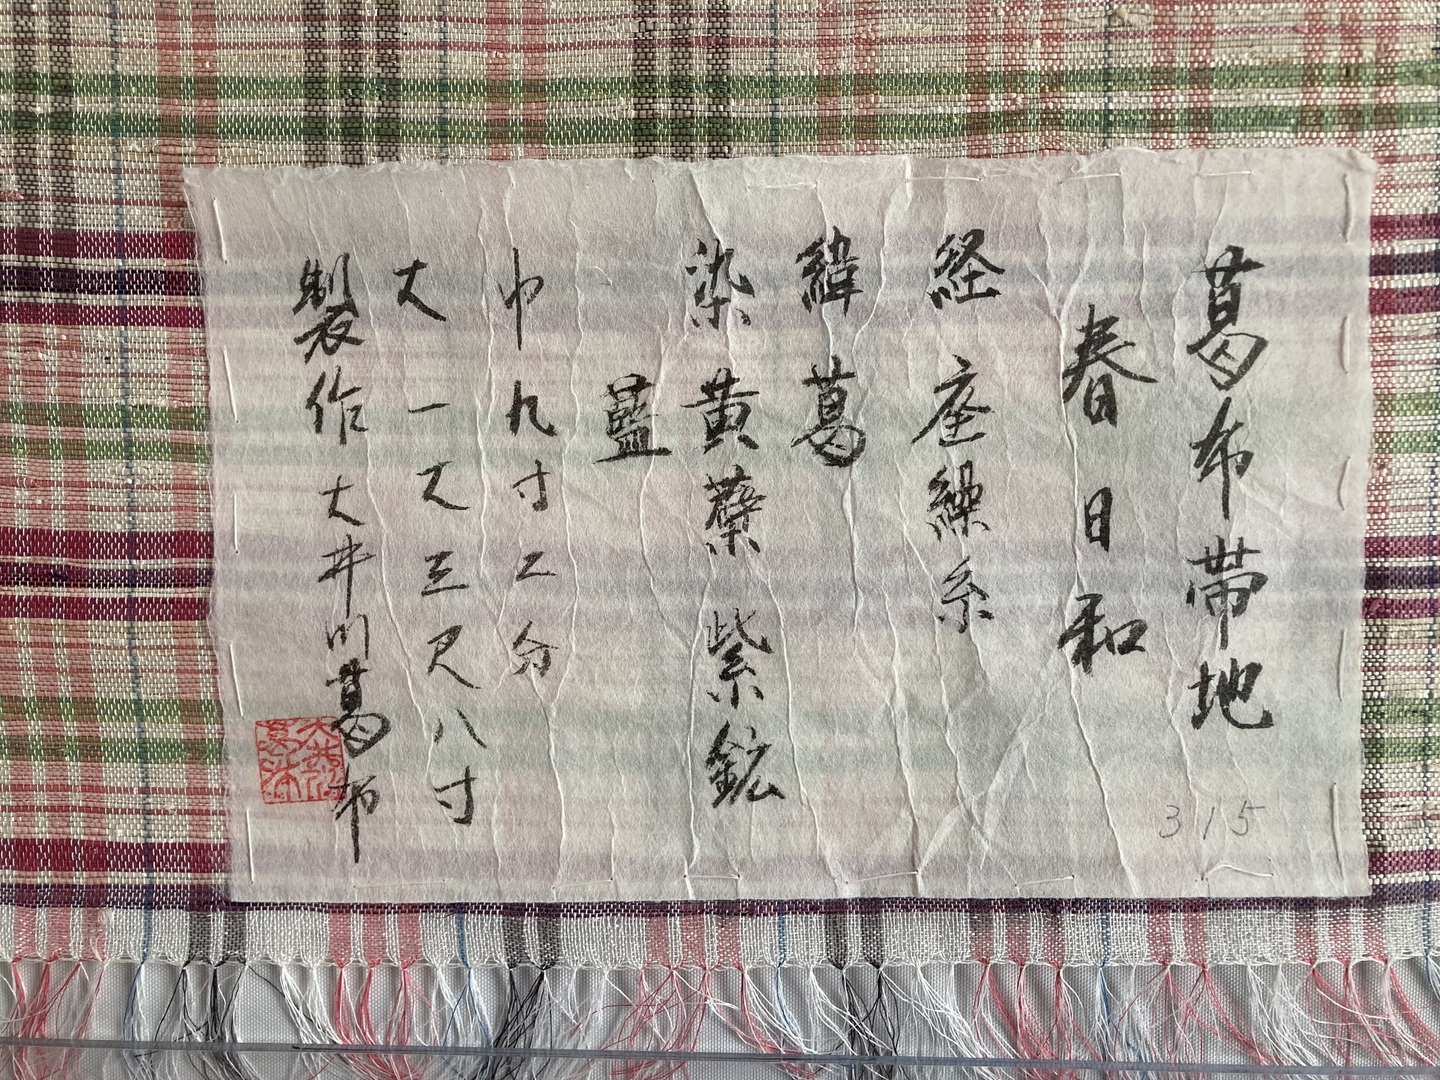 葛布帯地
春日和
経 座繰糸
緯 葛
染 黄蘗 紫鉱
藍
巾 九寸二分
丈 一丈三尺八寸
製作 大井川葛布
大井川葛布
315